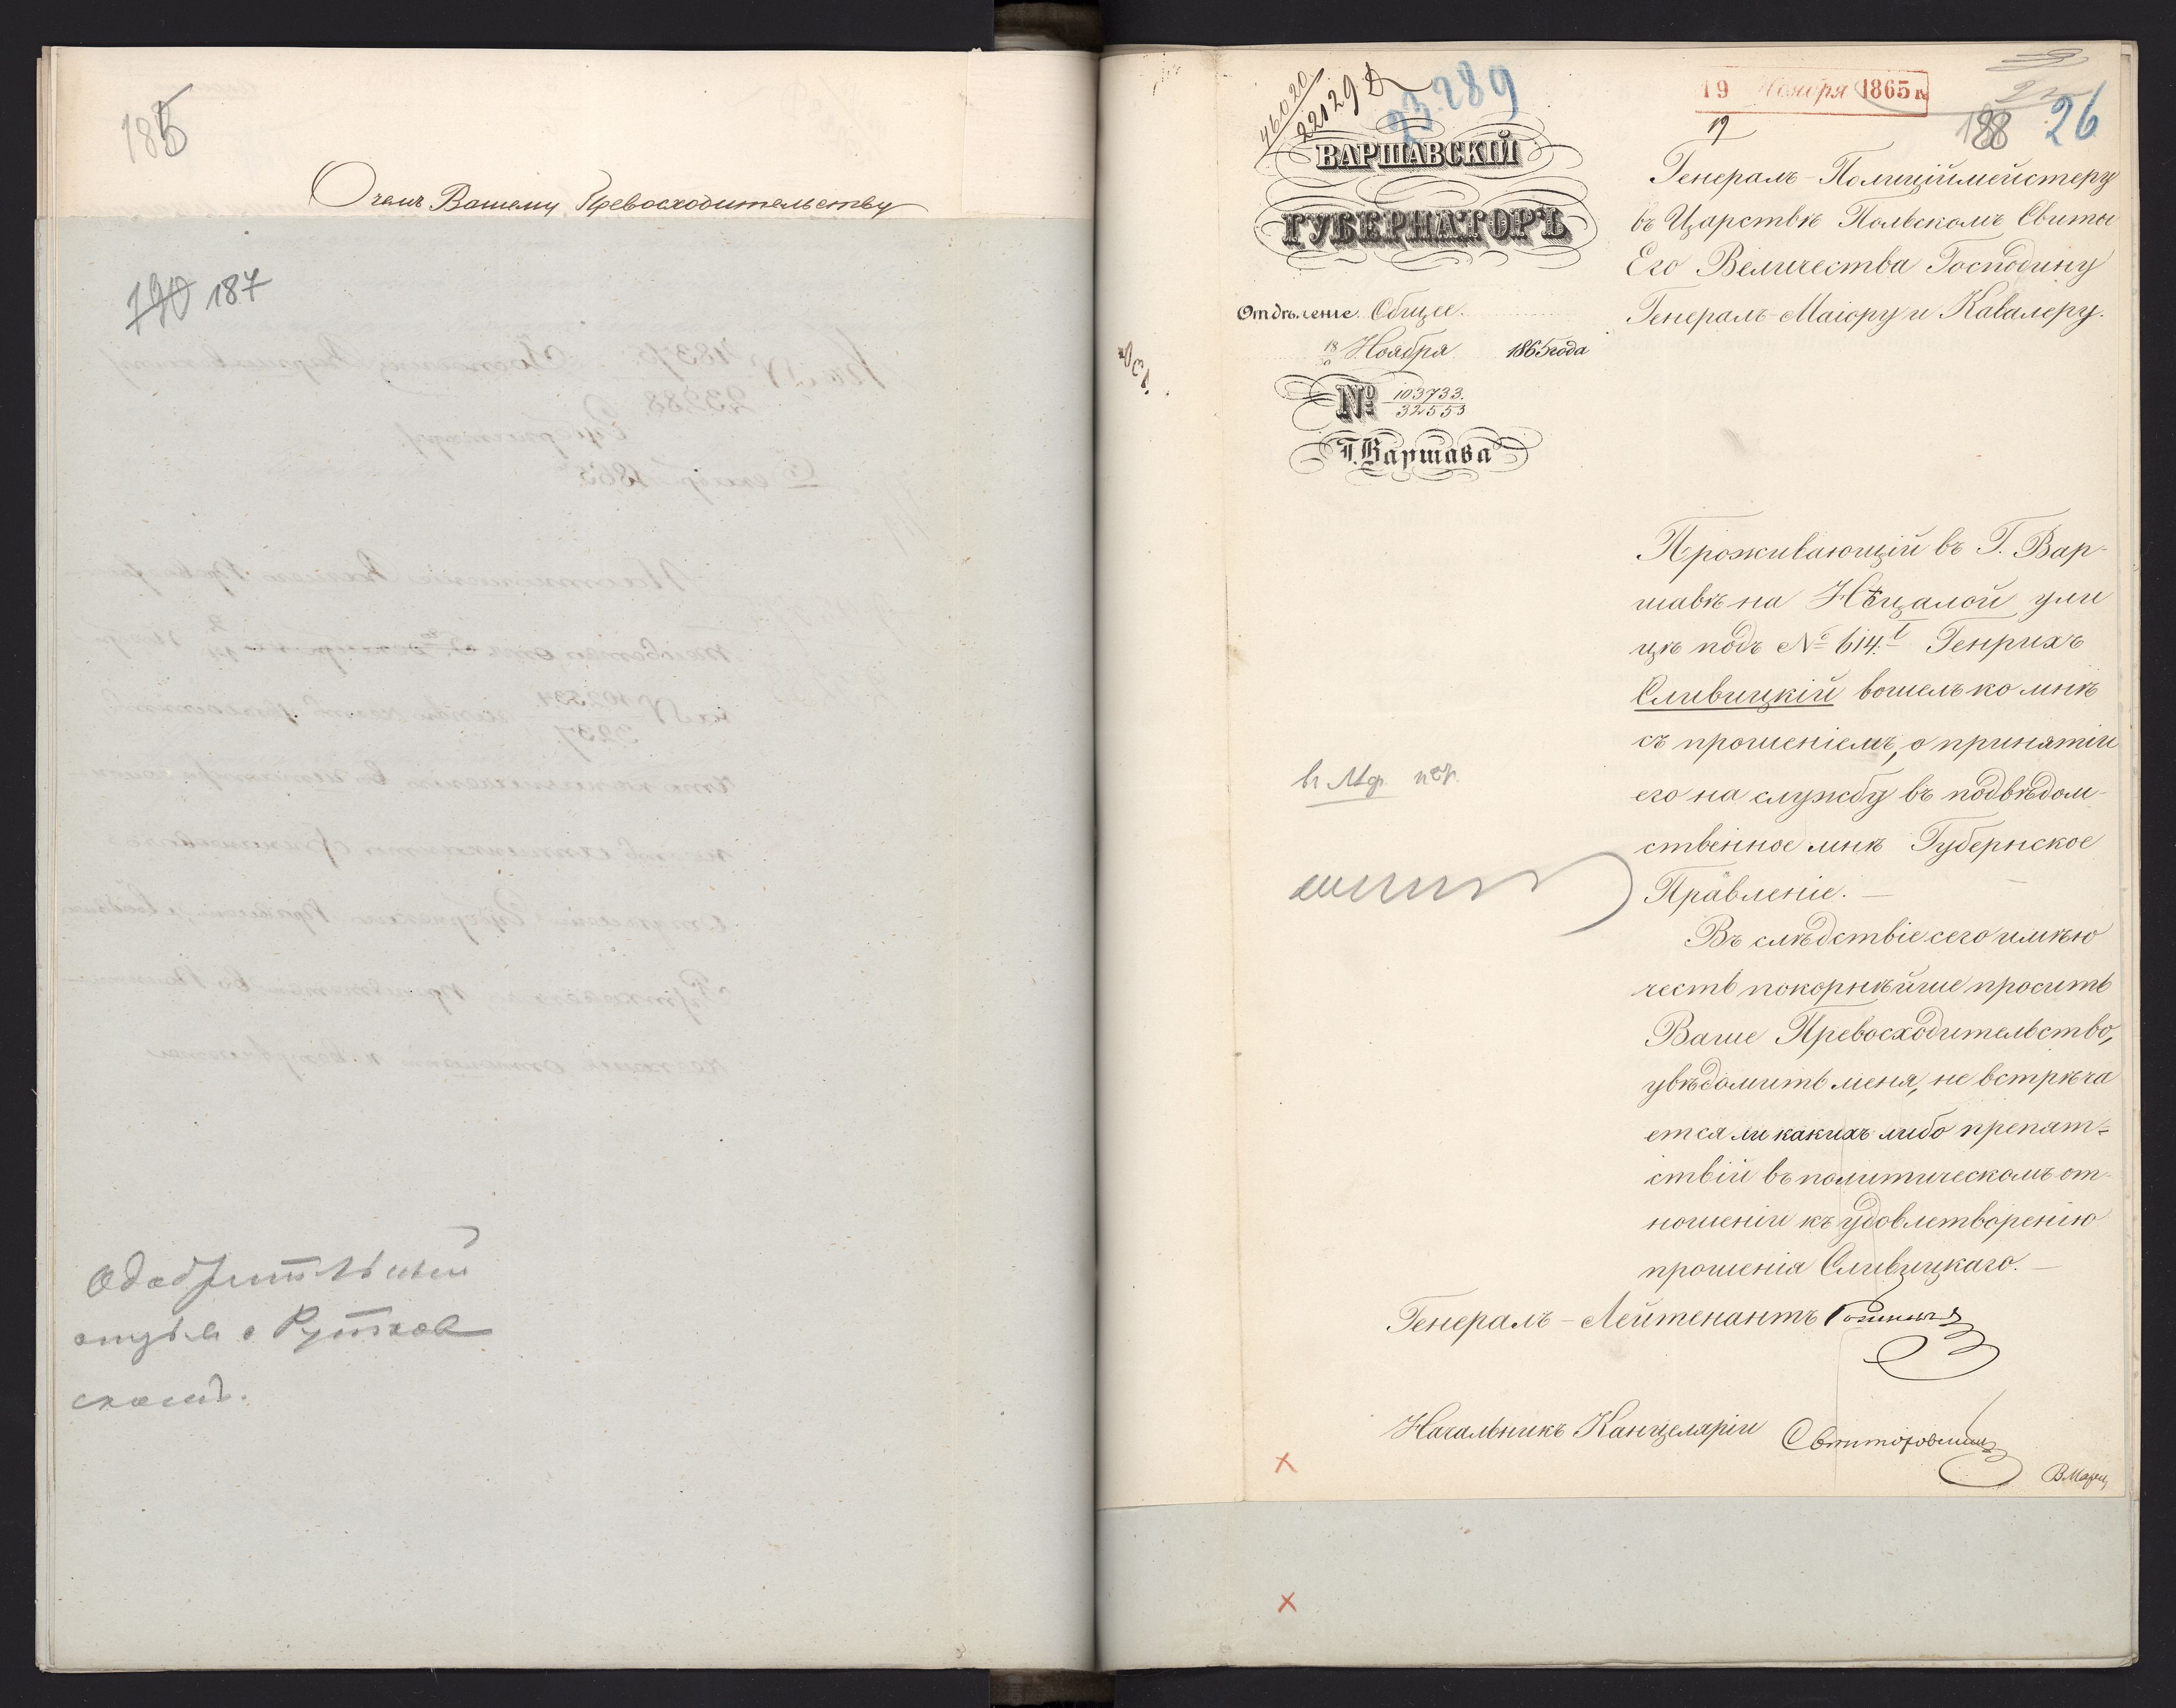 185
О чемъ Вашему Превосходительству
190 187
одобрительный
отзывъ о Рутков
скомъ.
46020
22029
23.289
19 Ноября 1865
188 26
ВАРШАВСКІЙ
ГУБЕРНАТОРЪ
Отдѣленіе Общее.
18 Ноября 1865 года
№ 103733.
32553
Г. Варшава
Генералъ-Полиціймейстеру
въ Царствѣ Польскомъ Свиты
Его Величества Господину
Генералъ-Маіору и Кавалеру.
Проживающій въ Г. Вар-
шавѣ на Нѣцалой ули
цѣ подъ № 614 Генрихъ
Сливицкій вошелъ ко мнѣ
съ прошеніемъ, о принятіи
его на службу въ подвѣдом-
ственное мнѣ Губернское
Правленіе. —
Въ слѣдствіе сего имѣю
честь покорнѣйше просить
Ваше Превосходительство,
увѣдомить меня, не встрѣча
ется ли какихъ либо препят-
ствій въ политическомъ от-
ношеніи къ удовлетворенію
прошенія Сливицкаго. —
Генералъ-Лейтенантъ
Начальникъ Канцеляріи